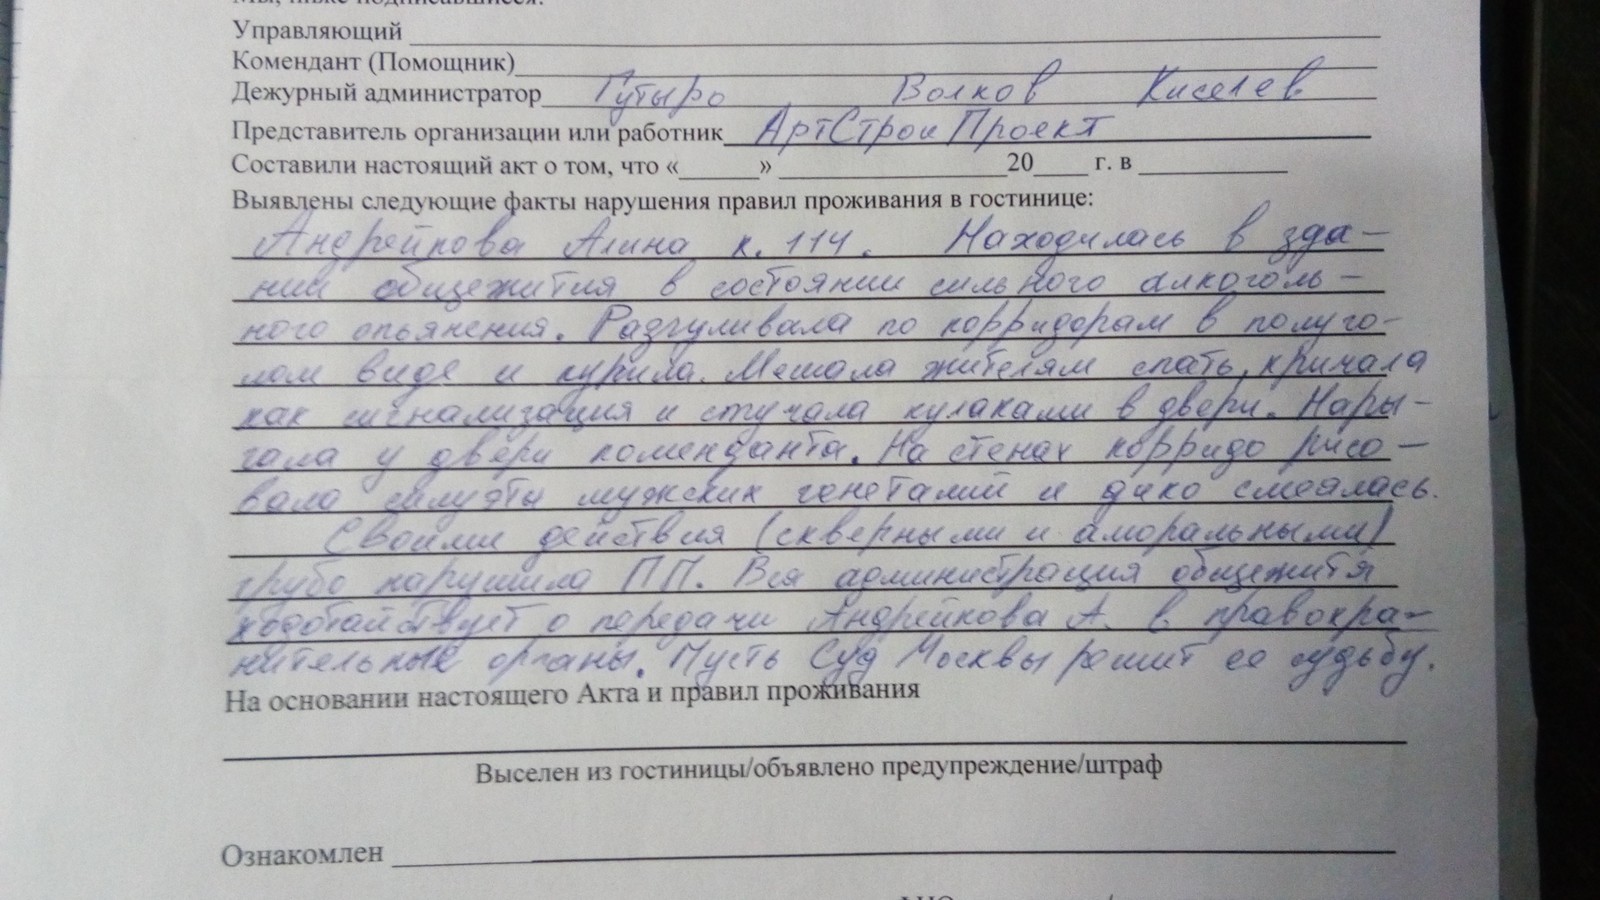 Мы, ниже подписавшиеся:
Управляющий
Комендант (Помощник)
Дежурный администратор Гутыро Волков Киселев
Представитель организации или работник АртСтроиПроект
Составили настоящий акт о том, что « » 20 г. в
Выявлены следующие факты нарушения правил проживания в гостинице:
Андрейкова Алина к. 114. Находилась в зда-
нии общежития в состоянии сильного алкоголь-
ного опьянения. Разгуливала по корридорам в полуго-
лом виде и курила. Мешала жителям спать, кричала
как сигнализация и стучала кулаками в двери. Нары-
гала у двери коменданта. На стенах корридо рисо-
вала силуэты мужских генеталий и дико смеялась.
Своими действия (скверными и аморальными)
грубо нарушила ПП. Вся администрация общежитя
ходотайствует о передачи Андрейкова А. в правохра-
нительные органы. Пусть Суд Москвы решит ее судьбу.
На основании настоящего Акта и правил проживания
Выселен из гостиницы/объявлено предупреждение/штраф
Ознакомлен